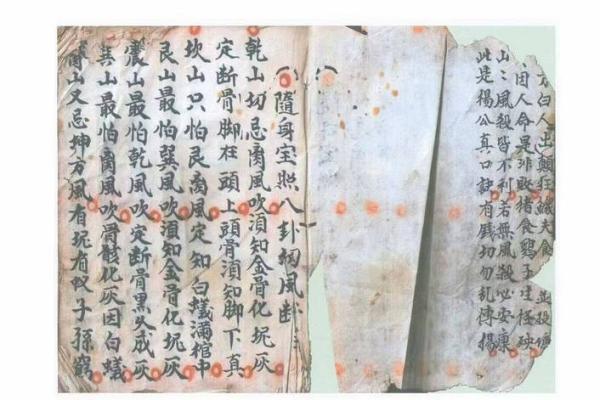 白人出顛狂鰥夫食
因人命是非敗猪食鷄子生怪殃
山々風殺皆不利若無風殺必安康
此是楊公真口訣有錢切勿乱傳揚
隨身宝照八卦坳風断
乾山切忌离風吹須知金骨化坭灰
定断骨脚在頭上頭骨須知脚下真
坎山只怕艮离風定知白蟻滿棺中
艮山最怕巽風吹須知金骨化坭灰
震山最怕乾風吹定断骨黑久成灰
巽山最怕离風吹骨骸化灰因白蟻
离山又忌坤方風有坭有蚁子孫窮